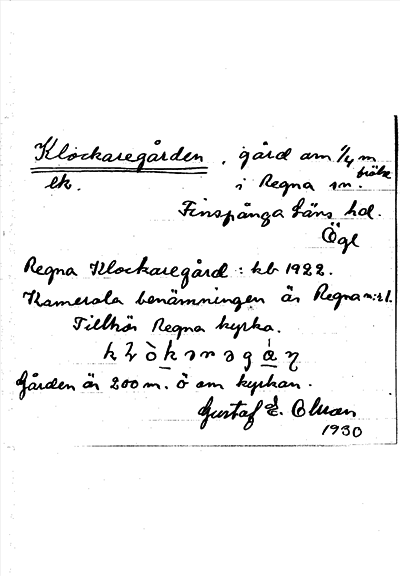 Klockaregården, gård om 1/4 m
frälse
lk. i Regna sn.
Finspånga läns hd.
Ögl
Regna Klockaregård: kb 1922.
Kamerala benämningen är Regna n:r 1.
Tillhör Regna kyrka.
Gården är 200 m. ö om kyrkan.
Gustaf E. Olsson
1930